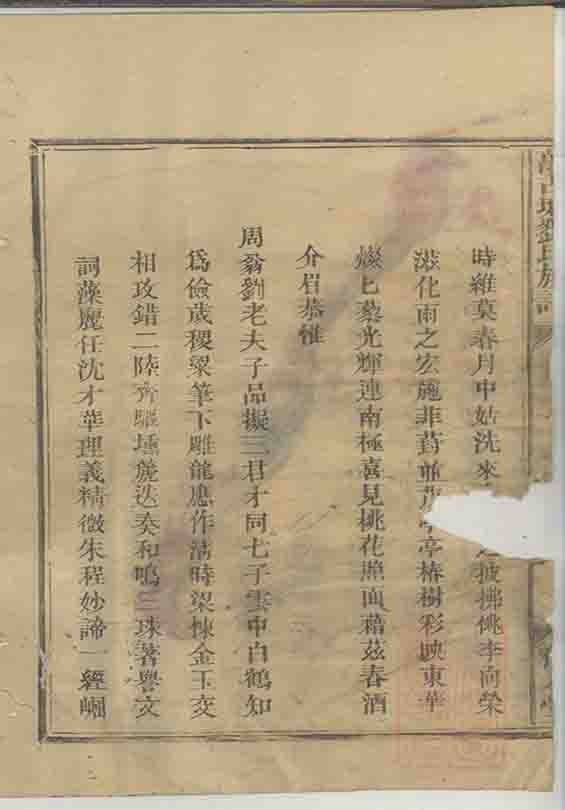 劉氏族譜
時維莫春月中姑洗來披拂桃李向榮
滋化雨之宏施菲葑並茂亭亭椿樹彩映東華
燦匕蔾光輝連南極喜見桃花照面藉茲春酒
介眉恭惟
周翁劉老夫子品擬三君才同七子雲中白鶴知
為儉歲稷粱筆下雕龍應作清時梁棟金玉交
相攻錯二陸齊驅壎篪迭奏和鳴三珠著譽文
詞藻麗任沈才華理義精微朱程妙諦一經崛